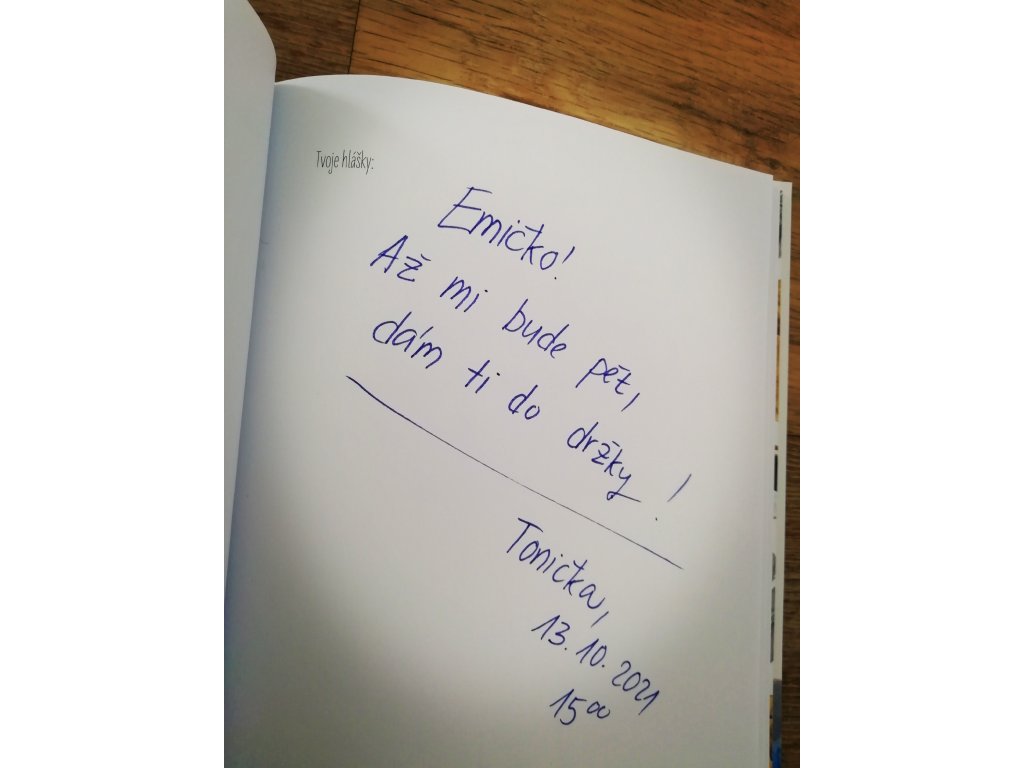 Tvoje hlášky:
Emičko!
Až mi bude pět,
dám ti do držky!
Tonička,
13.10.2021
15⁰⁰